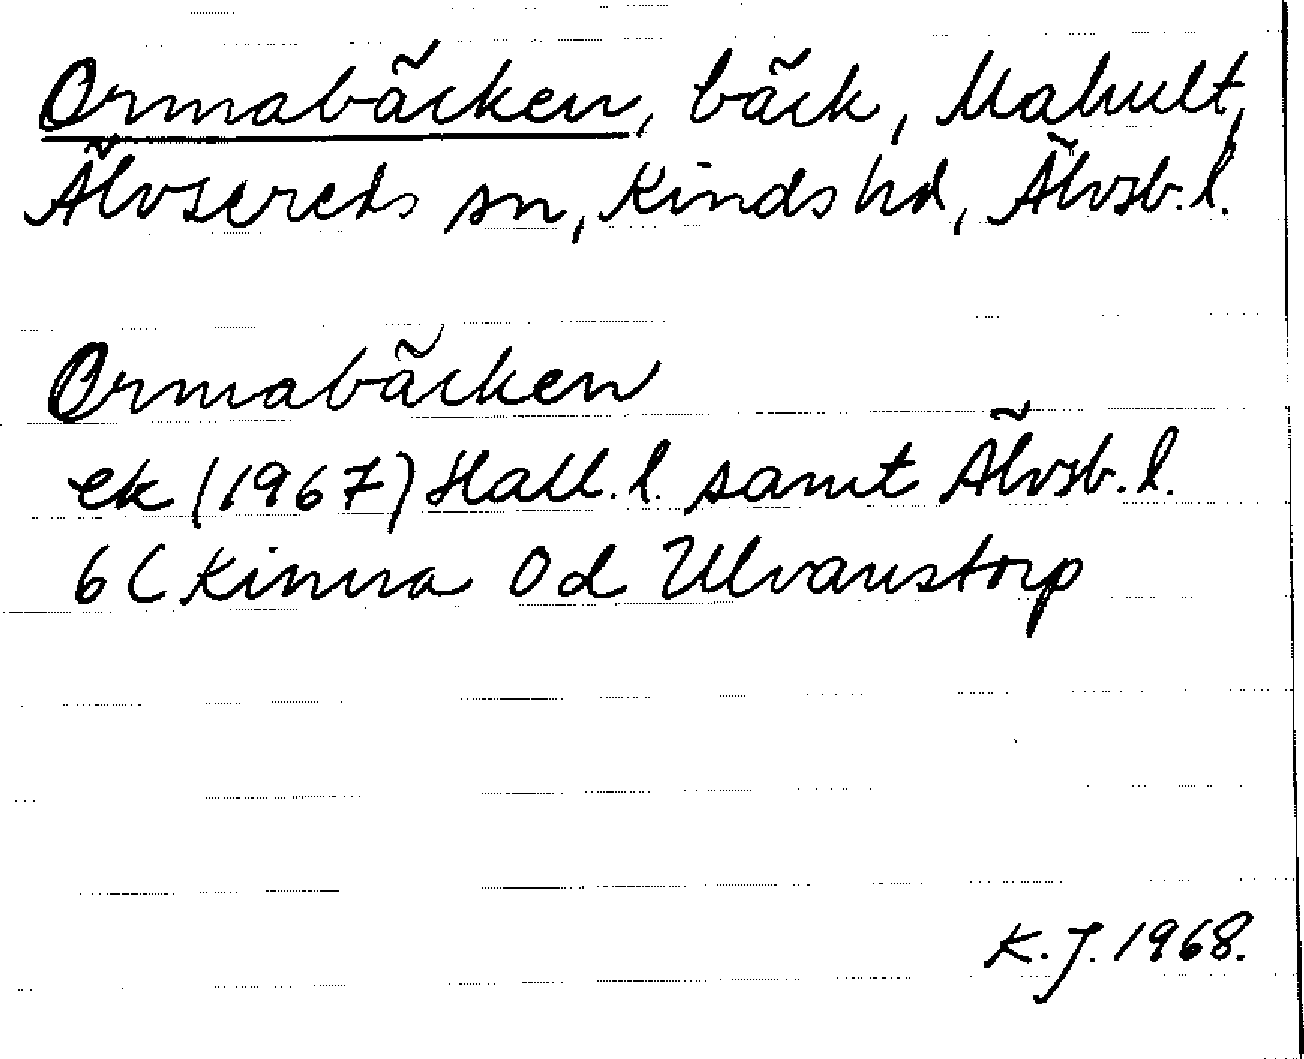 Ormabäcken, bäck, Mahult,
Älvsereds sn, Kinds hd, Älvsb. l.
Ormabäcken
ek (1967) Hall. l. samt Älvsb. l.
6 C Kinna 0 d Ulvanstorp
K. J. 1968.